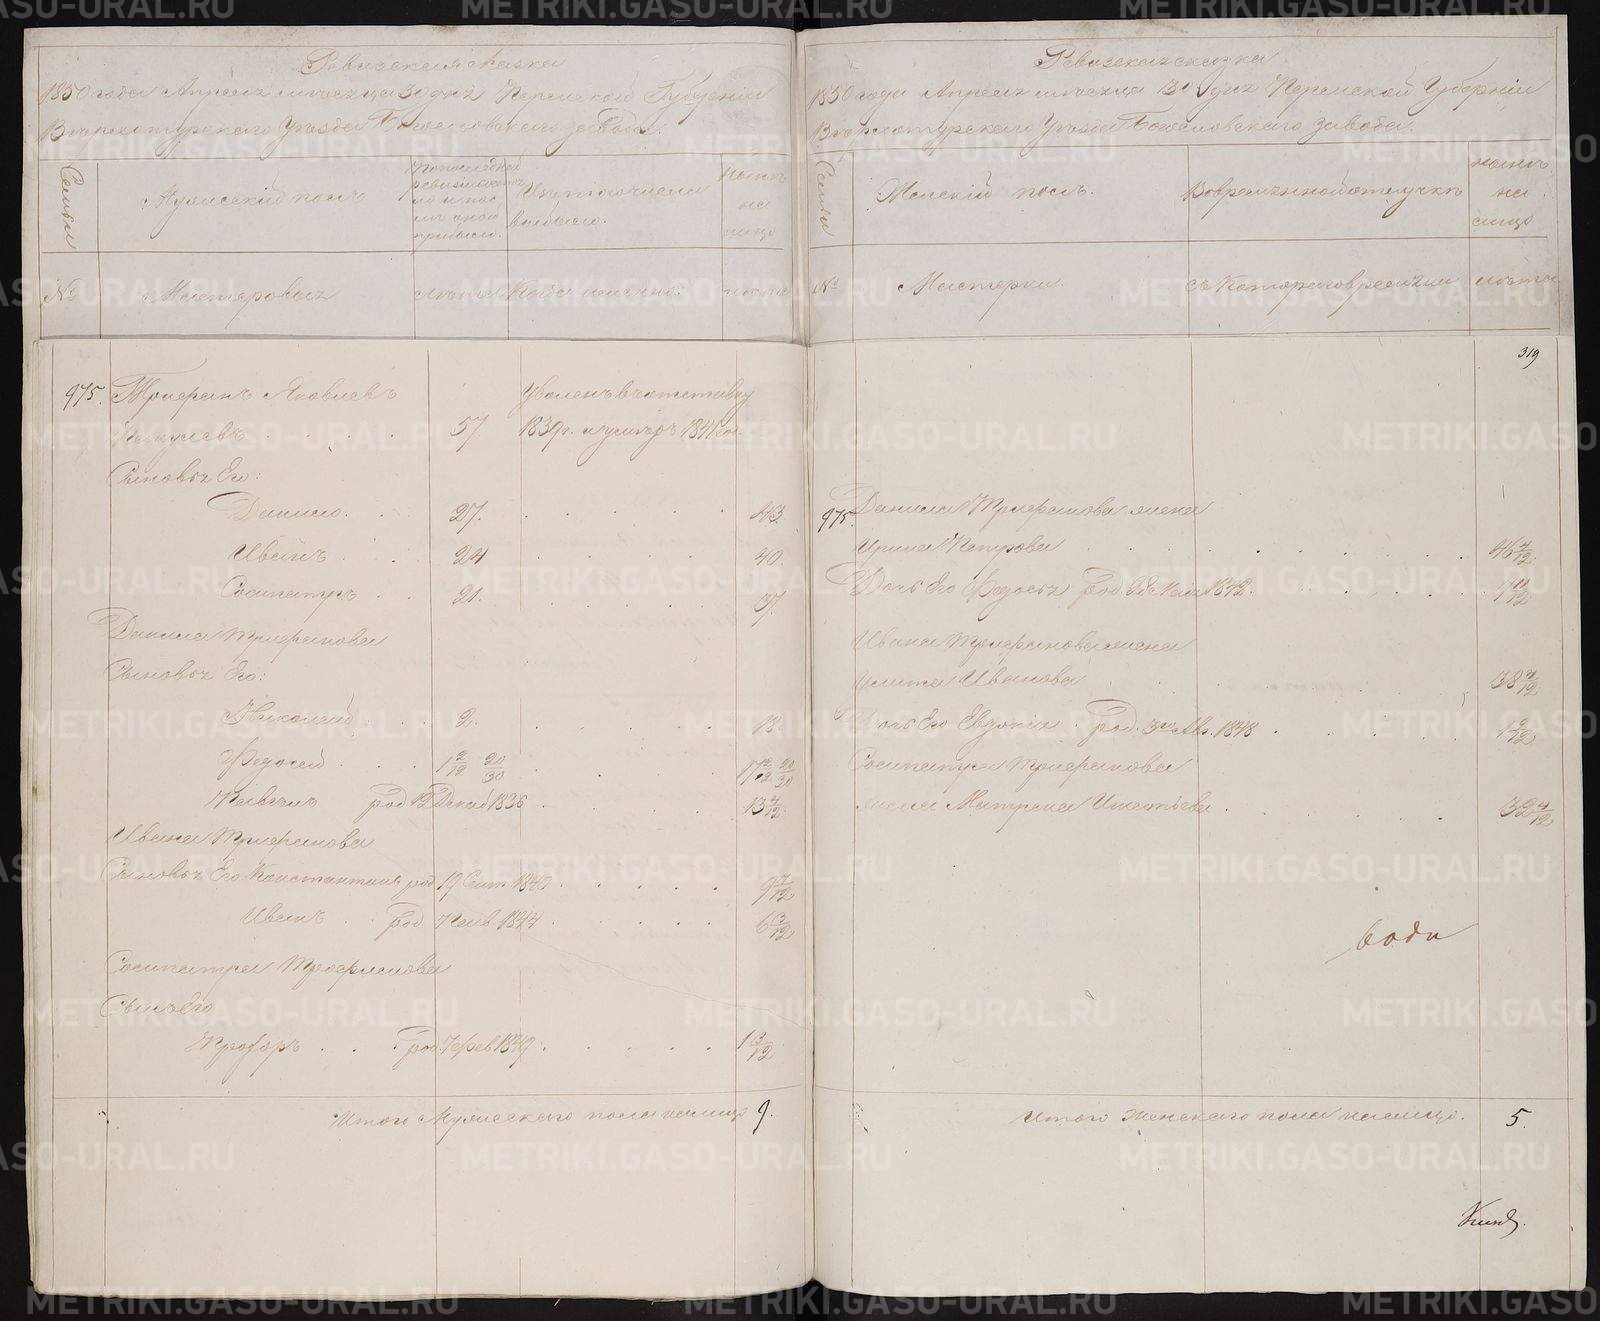 Ревизская сказка
1850 года Апреля месяца 30 дня Пермской Губернiи
Верхотурского Уезда Богословского завода.
Семьи
Мужескiй полъ
По последней ревизiи состояло и после оной прибыло.
Изъ того числа выбыло.
Ныне на лицо
№
Мастеровыхъ
лета
Когда именно.
лета
975. Трифанъ Яковлевъ
57.
Уволенъ въ отставку
1839 г. и умеръ 1841 го.
Сыновья Его:
Данило. 27. 43.
Иванъ 24 40.
Сосипатръ 21. 37.
Данила Трифанова
Сыновья Его:
Николай 2. 18
Федосей 1 2/12 20/30 17 2/12 20/30
род 19 Декаб 1836 13 4/12
Ивана Трифанова
Сыновья Его Константинъ род 19 Сент. 1840 9 7/12
Иванъ род 7 Янв 1844 6 3/12
Сосипатра Трифанова
Сынъ Его
Трофоръ род. 7 Фев 1849 1 3/12
Итого Мужескаго пола налицо 9.
Ревизская сказка
1850 года Апреля месяца 30 дня Пермской Губернiи
Верхотурского Уезда Богословского завода.
Семьи
Женскiй полъ.
Во временной отлучке
Ныне на лицо
№
Мастерки
съ Котораго времени
лета
319
975. Данила Трифанова жена
Ирина Петрова 46 4/12
Дочь Его Федосья род. 1842. 7 11/12
Ивана Трифанова жена
Улита Иванова 38 4/12
Дочь Его Евдокiя род. 3го Авг. 1848 1 9/12
Сосипатра Трифанова
жена Матрена Игнатьева 32 4/12
Итого Женскаго пола налицо. 5.